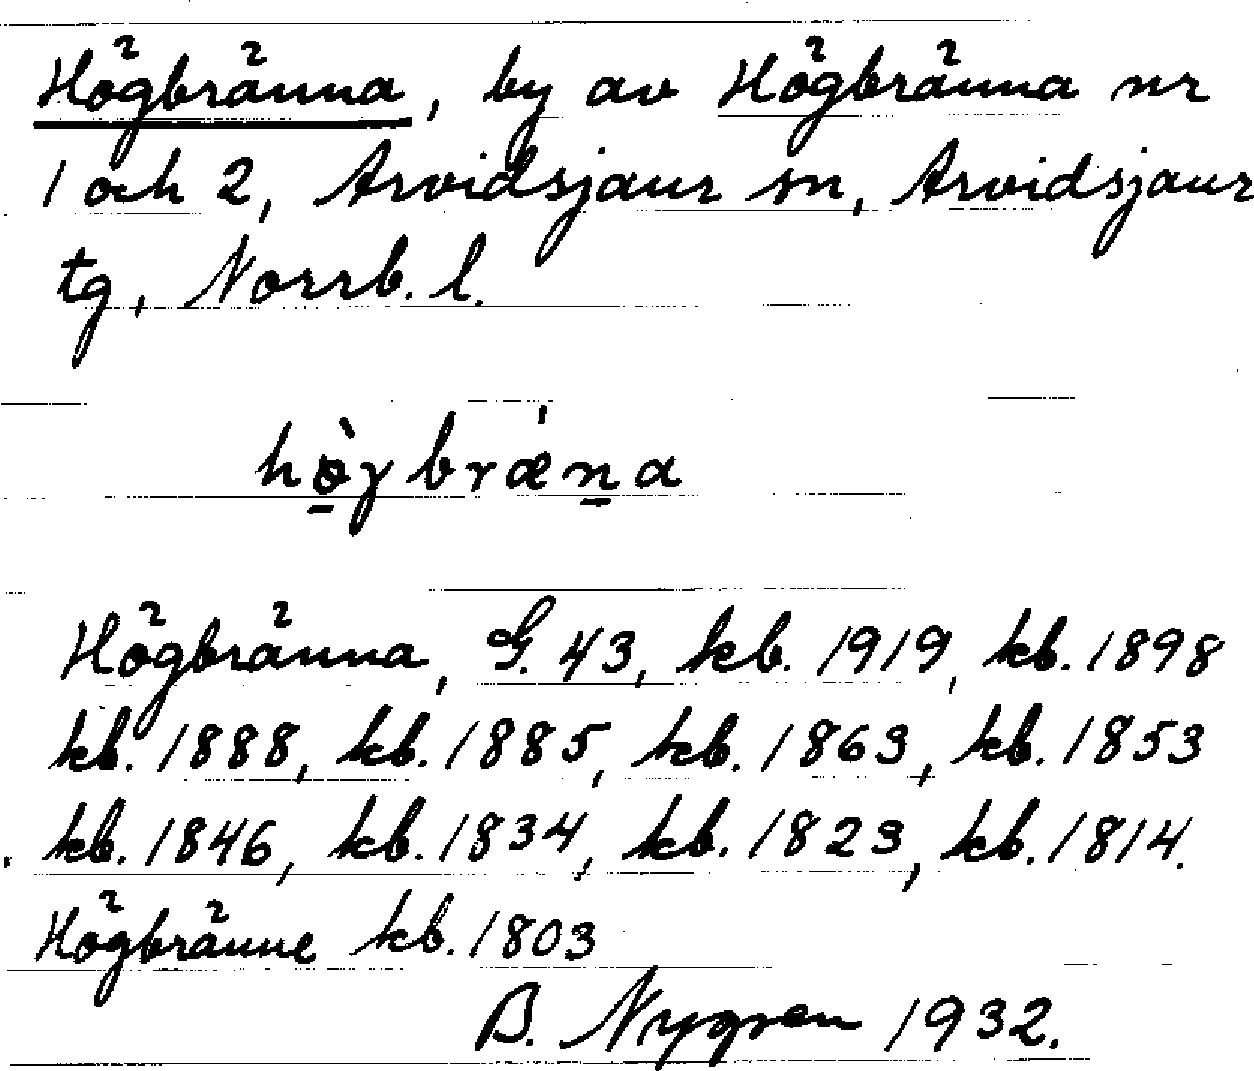 Högbränna, by av Högbränna nr
1 och 2, Arvidsjaur sn, Arvidsjaur
tg, Norrb. l.
hö̠̀gbrǽn̠a
Högbränna, G. 43, kb. 1919, kb. 1898
kb. 1888, kb. 1885, kb. 1863, kb. 1853
kb. 1846, kb. 1834, kb. 1823, kb. 1814.
Högbränne kb. 1803
B. Nygren 1932.